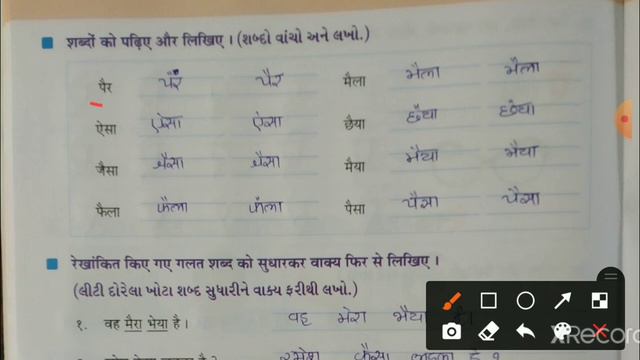 शब्दों को पढ़िए और लिखिए । (શબ્દો વાંચો અને લખો.)
पैर पैर पैर मैला मैला मैला
ऐसा ऐसा ऐसा छैया छैया छैया
जैसा जैसा जैसा मैया मैया मैया
फैला फैला फैला पैसा पैसा पैसा
रेखांकित किए गए गलत शब्द को सुधारकर वाक्य फिर से लिखिए ।
(લીટી દોરેલા ખોટા શબ્દ સુધારીને વાક્ય ફરીથી લખો.)
१. वह मैरा भेया है । वह मेरा भैया
XRecorde